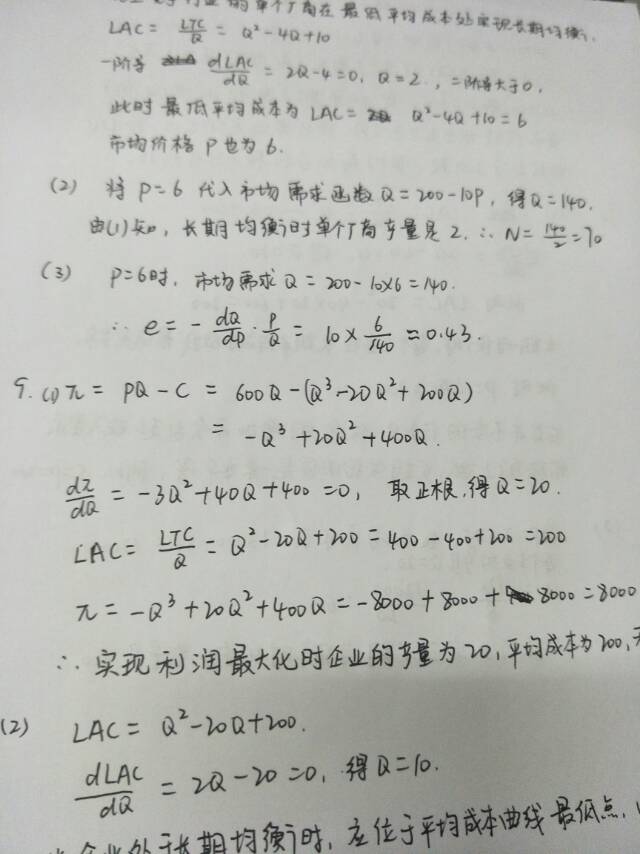 单个厂商在最低平均成本处实现长期均衡.
LAC = LTC/Q = Q²-4Q+10
一阶导 dLAC/dQ = 2Q-4=0, Q=2. , 二阶导大于0,
此时最低平均成本为 LAC = Q²-4Q+10=6
市场价格 P 也为 6.
(2) 将 P=6 代入市场需求函数 Q=200-10P, 得 Q=140.
由(1)知, 长期均衡时单个厂商产量是 2. ∴ N = 140/2 = 70
(3) P=6时, 市场需求 Q = 200-10×6 = 140.
∴ e = - dQ/dP · P/Q = 10 × 6/140 ≈ 0.43.
9. (1) π = PQ - C = 600Q - (Q³-20Q²+200Q)
= -Q³+20Q²+400Q.
dπ/dQ = -3Q²+40Q+400 =0, 取正根, 得 Q=20.
LAC = LTC/Q = Q²-20Q+200 = 400-400+200 = 200
π = -Q³+20Q²+400Q = -8000+8000+8000=8000
∴ 实现利润最大化时企业的产量为 20, 平均成本为 200,
(2) LAC = Q²-20Q+200.
dLAC/dQ = 2Q-20=0, 得 Q=10.
企业处于长期均衡时, 应位于平均成本曲线最低点,